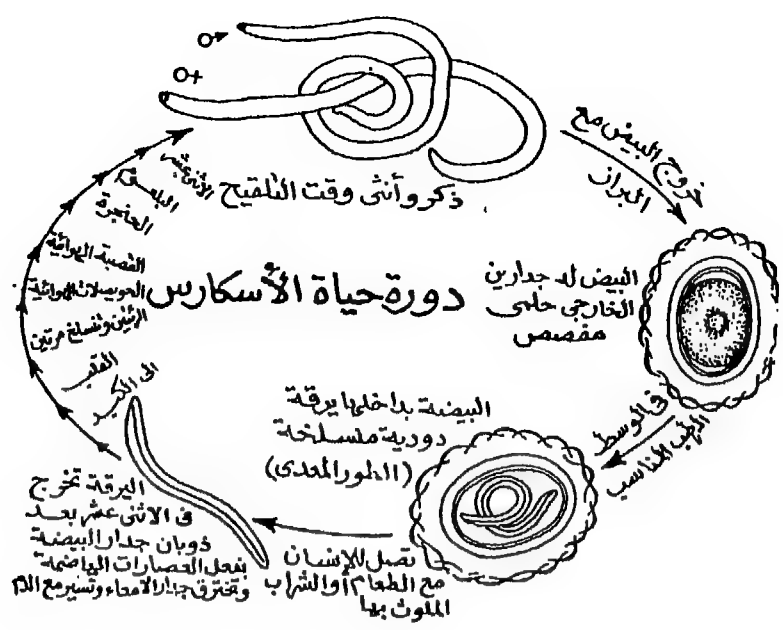 ذكر وأنثى وقت التلقيح
خروج البيض مع
البراز
البيض له جدارين
الخارجى حلمى
مقصص
فى الوسط
الرطب المناسب
البيضة بداخلها يرقة
دودية منسلخة
(الطور المعدى)
تصل للإنسان
مع الطعام أو الشراب
الملوث بها
اليرقة تخرج
فى الاثنى عشر بعد
ذوبان جدار البيضة
بفعل العصارات الهاضمة
وتخترق جدار الامعاء وتسير مع الدم
الى الكبد
القلب
الرئتين وتنسلخ مرتين
الحويصلات الهوائية
القصبة الهوائية
الحنجرة
البلعوم
الاثنى عشر
دورة حياة الأسكارس